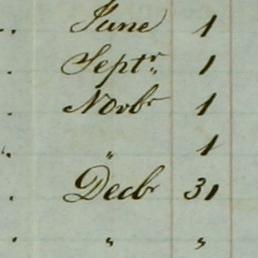 June 1
Septr. 1
Novbr 1
" 1
Decbr 31
" "